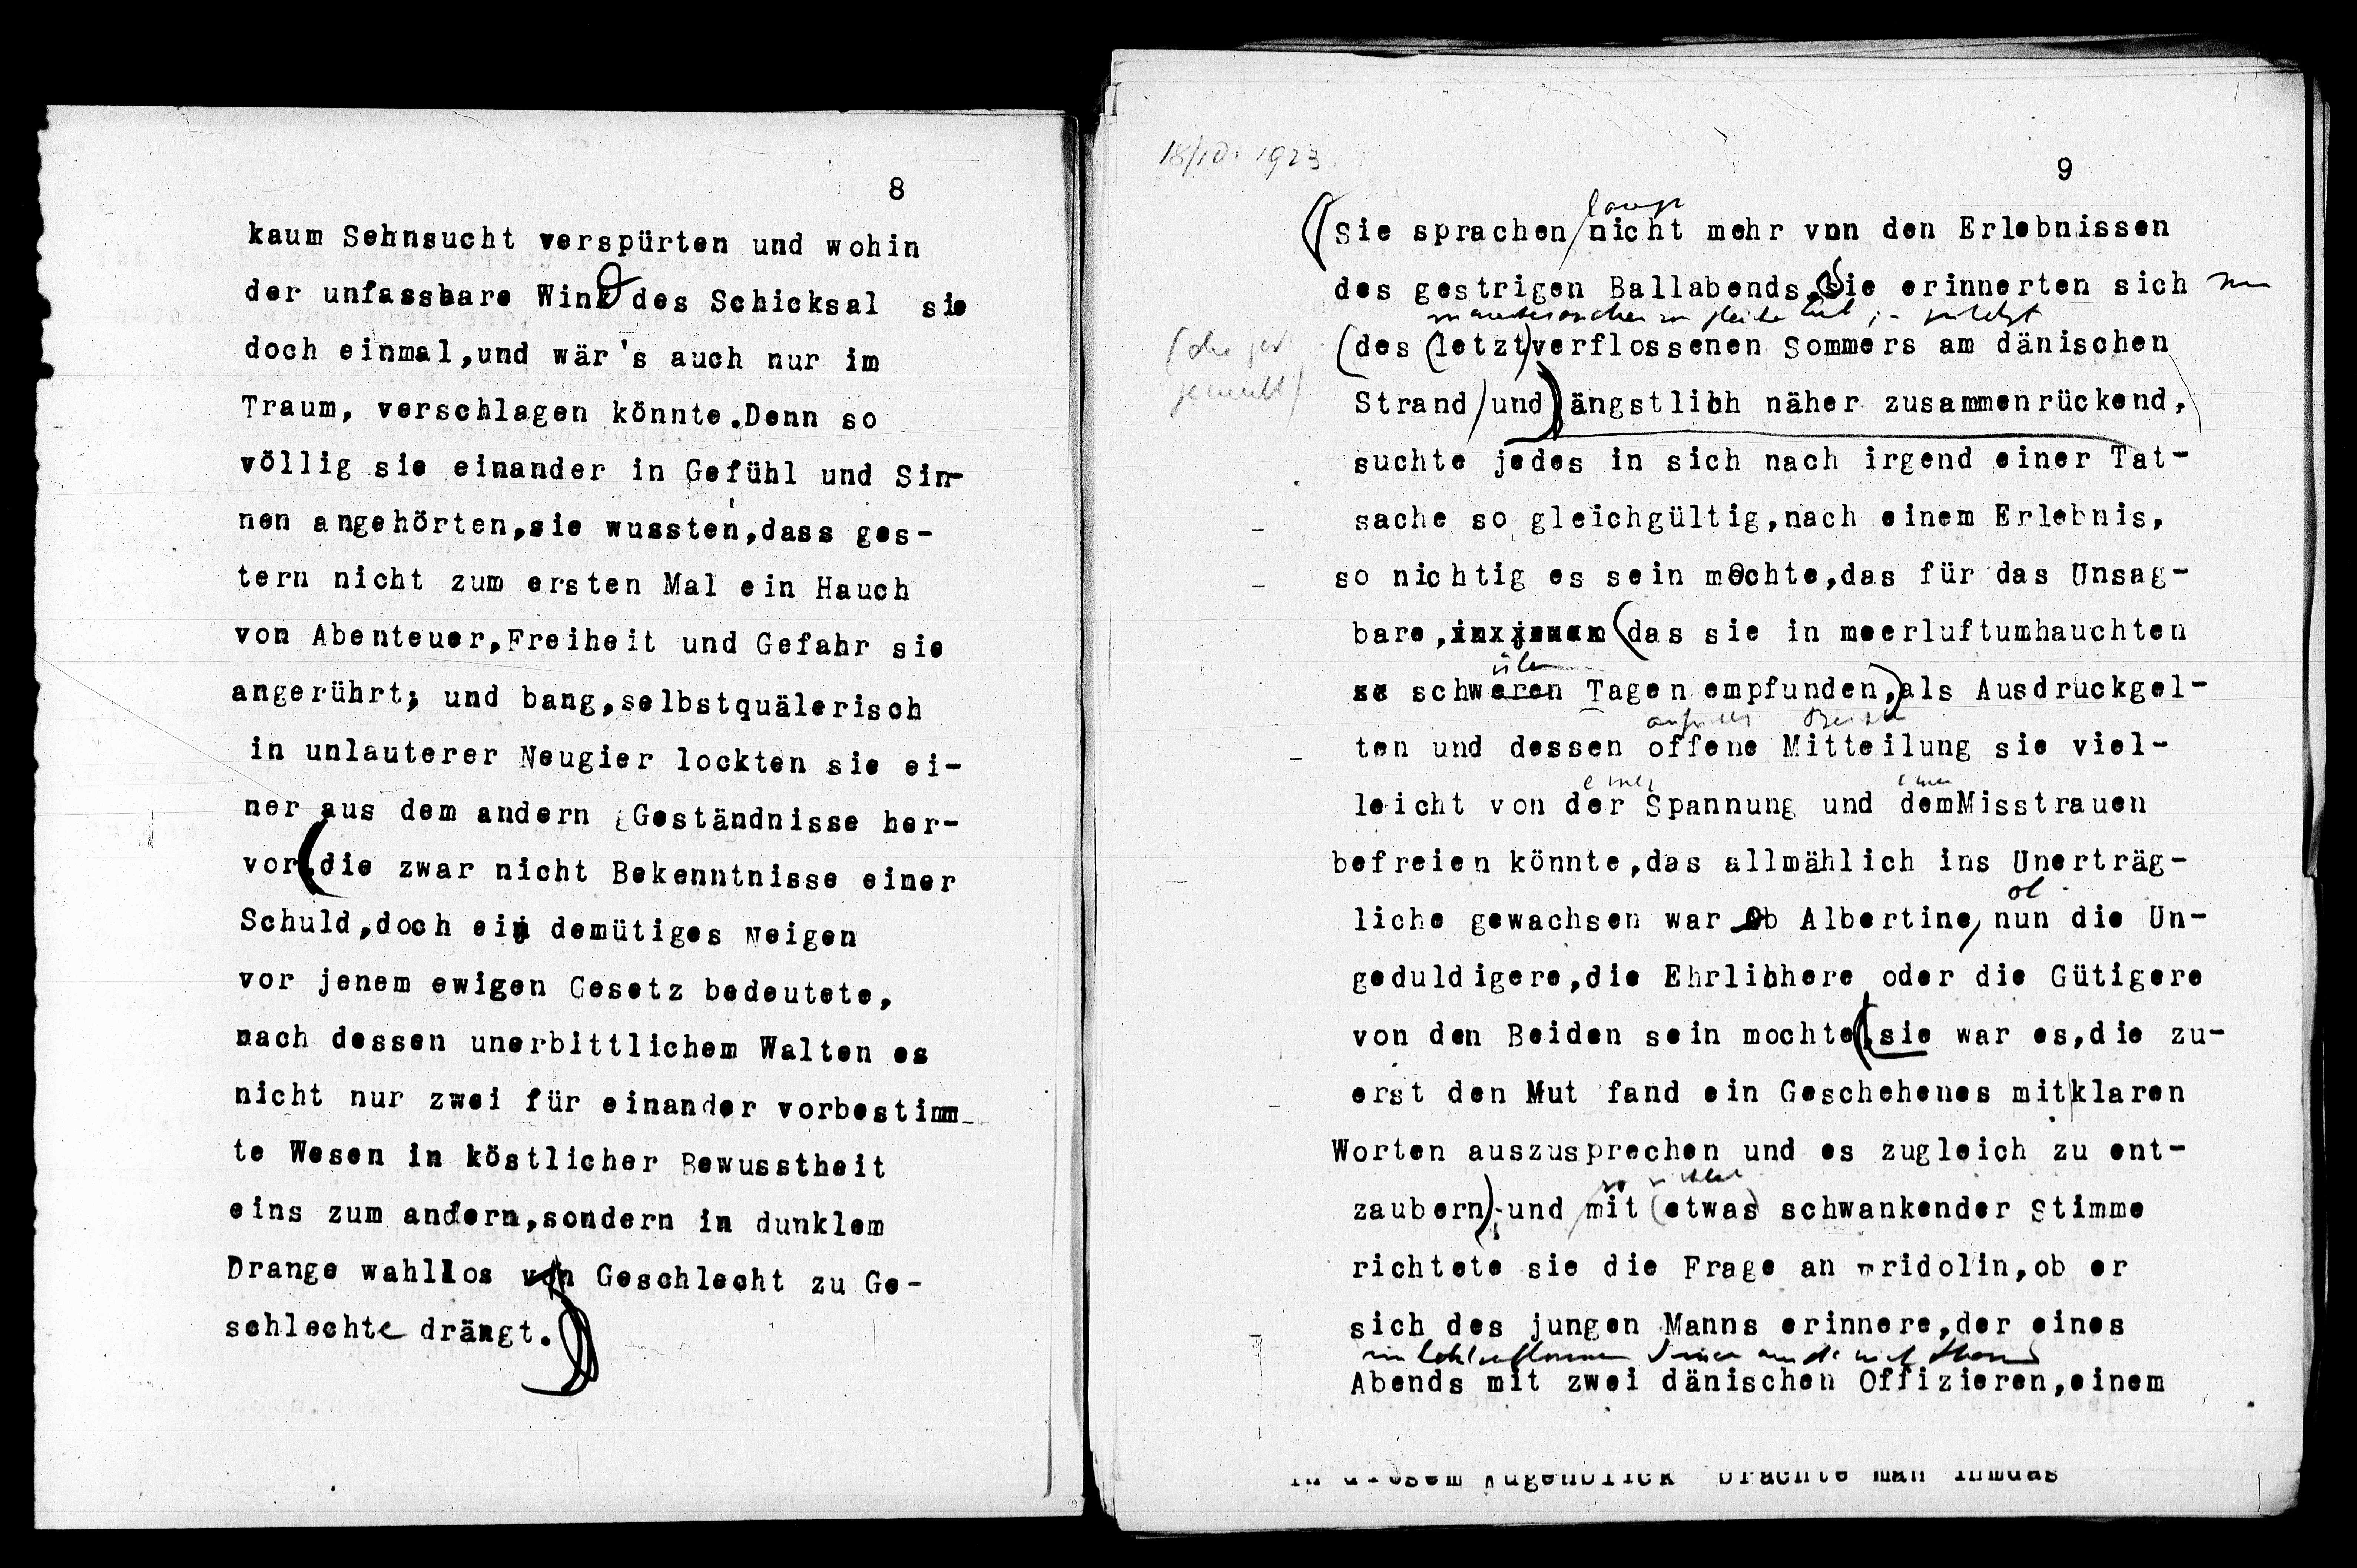 8
kaum Sehnsucht verspürten und wohin
der unfassbare Wind des Schicksal sie
doch einmal,und wär's auch nur im
Traum, verschlagen könnte.Denn so
völlig sie einander in Gefühl und Sin-
nen angehörten,sie wussten,dass ges-
tern nicht zum ersten Mal ein Hauch
von Abenteuer,Freiheit und Gefahr sie
angerührt; und bang,selbstquälerisch
in unlauterer Neugier lockten sie ei-
ner aus dem andern Geständnisse her-
vor(die zwar nicht Bekenntnisse einer
Schuld,doch ein demütiges Neigen
vor jenem ewigen Gesetz bedeutete,
nach dessen unerbittlichem Walten es
nicht nur zwei für einander vorbestimm-
te Wesen in köstlicher Bewusstheit
eins zum andern,sondern in dunklem
Drange wahllos von Geschlecht zu Ge-
schlechte drängt.)
18/10. 1923.
9
(Sie sprachen nicht mehr von den Erlebnissen
des gestrigen Ballabends,Sie erinnerten sich
(des (letzt)verflossenen Sommers am dänischen
Strand)und) ängstlich näher zusammenrückend,
suchte jedes in sich nach irgend einer Tat-
sache so gleichgültig,nach einem Erlebnis,
so nichtig es sein mochte,das für das Unsag-
bare,(das sie in meerluftumhauchten
schweren Tagen empfunden,)als Ausdruckgel-
ten und dessen offene Mitteilung sie viel-
einer einem
leicht von der Spannung und demMisstrauen
befreien könnte,das allmählich ins Unerträg-
ob
liche gewachsen war Ob Albertine, nun die Un-
geduldigere,die Ehrlichere oder die Gütigere
von den Beiden sein mochte(,sie war es,die zu-
erst den Mut fand ein Geschehenes mit klaren
Worten auszusprechen und es zugleich zu ent-
zaubern);und mit (etwas) schwankender Stimme
richtete sie die Frage an Fridolin,ob er
sich des jungen Manns erinnere,der eines
Abends mit zwei dänischen Offizieren,einem
In diesem Augenblick brachte man ihmdas